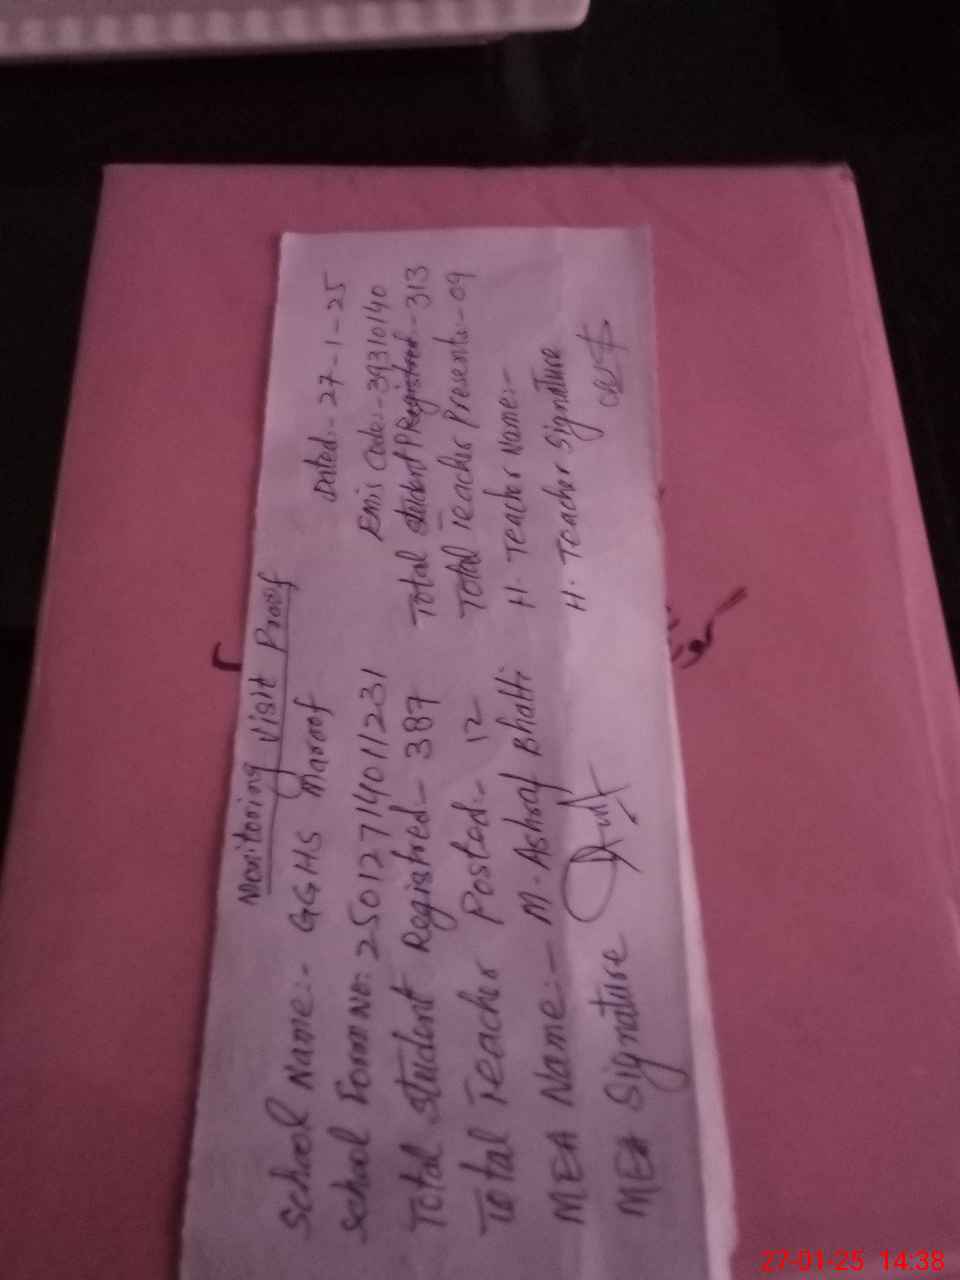 Monitoring Visit Proof
School Name:- GGHS Maroof Dated:- 27-1-25
School Form No: 25012714011231 Emis Code:- 39310140
Total Student Registred:- 387 Total Student P Registred:- 313
Total Teacher Posted:- 12 Total Teacher Present:- 09
MEA Name:- M. Ashraf Bhatti H. Teacher Name:-
MEA Signature H. Teacher Signature
27-01-25 14:38